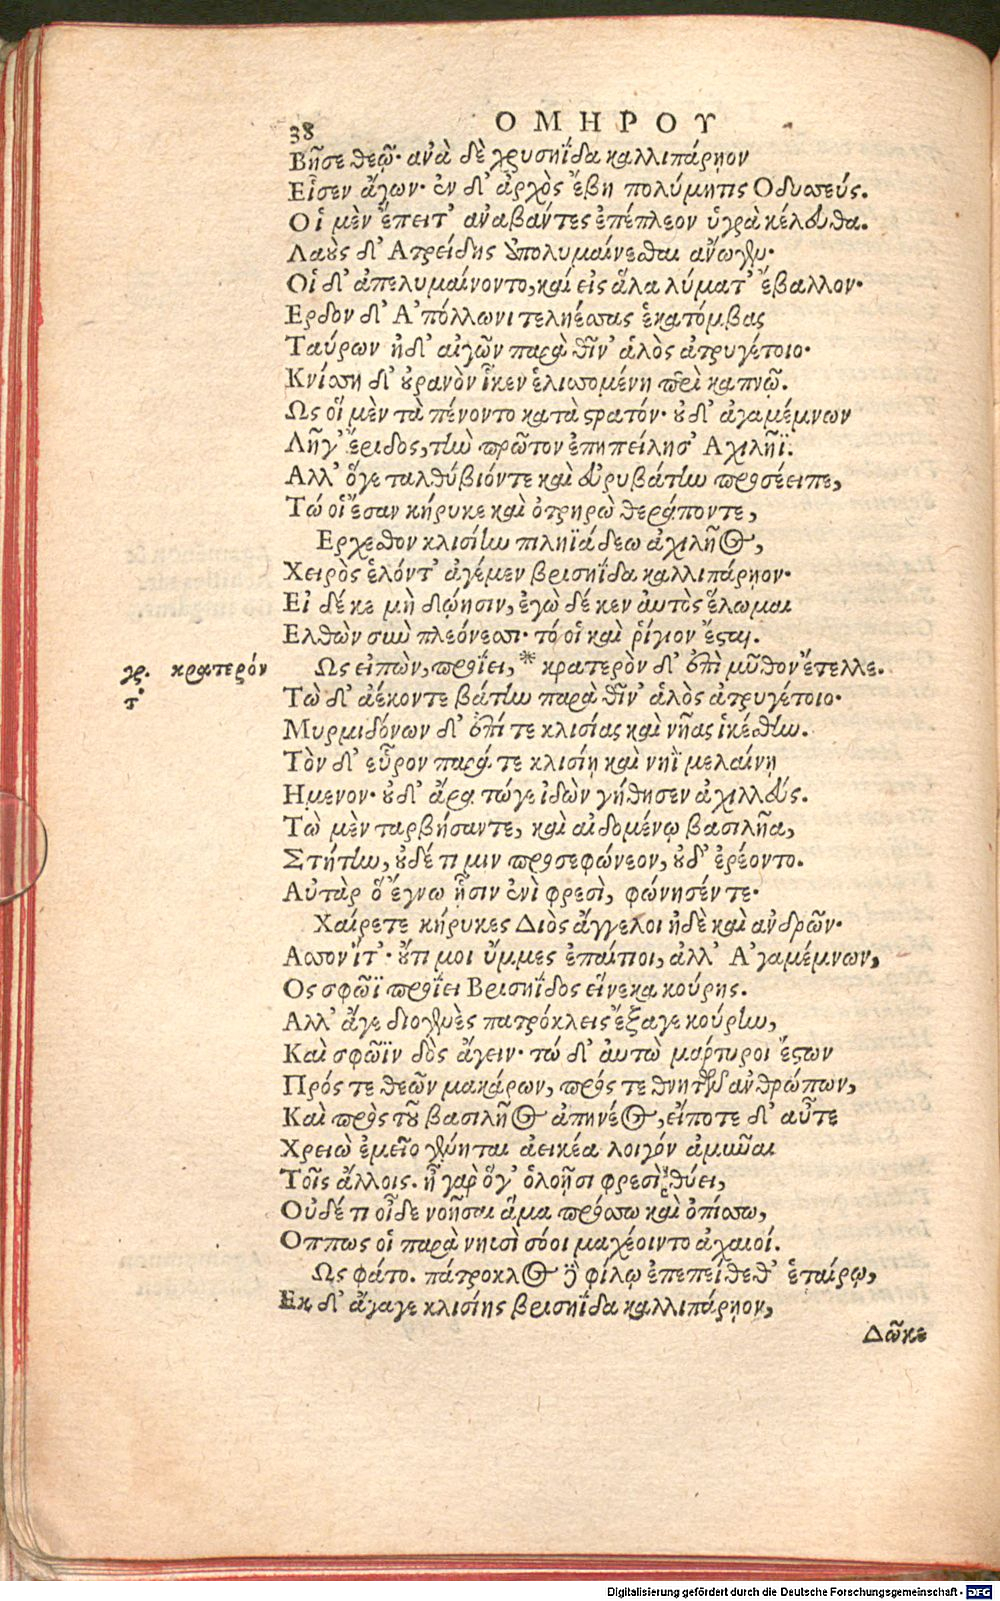 38 ΟΜΗΡΟΥ
Βῆσε θεῷ· ἀνὰ δὲ χρυσηΐδα καλλιπάρηον
Εἷσεν ἄγων· ἐν δ' ἀρχὸς ἔβη πολύμητις Οδυσσεύς.
Οἱ μὲν ἔπειτ' ἀναβάντες ἐπέπλεον ὑγρὰ κέλευθα.
Λαοὺς δ' Ατρείδης ἀπολυμαίνεσθαι ἀνώγει·
Οἱ δ' ἀπελυμαίνοντο, καὶ εἰς ἅλα λύματ' ἔβαλλον·
Ερδον δ' Α'πόλλωνι τεληέσσας ἑκατόμβας
Ταύρων ἠδ' αἰγῶν παρὰ θῖν' ἁλὸς ἀτρυγέτοιο·
Κνίσση δ' οὐρανὸν ἷκεν ἑλισσομένη περὶ καπνῷ.
Ως οἱ μὲν τὰ πένοντο κατὰ στρατόν· οὐδ' ἀγαμέμνων
Λῆγ' ἔριδος, τὴν πρῶτον ἐπηπείλησ' Αχιλῆϊ.
Αλλ' ὅγε ταλθύβιόντε καὶ εὐρυβάτην προσέειπε,
Τώ οἱ ἔσαν κήρυκε καὶ ὀτρηρὼ θεράποντε,
Ερχεσθον κλισίην πηληϊάδεω ἀχιλῆος,
Χειρὸς ἑλόντ' ἀγέμεν βρισηΐδα καλλιπάρηον·
Εἰ δέ κε μὴ δώησιν, ἐγὼ δέ κεν αὐτὸς ἕλωμαι
Ελθὼν σὺν πλεόνεσσι· τό οἱ καὶ ῥίγιον ἔσται.
Ως εἰπὼν, προΐει, * κρατερὸν δ' ἐπὶ μῦθον ἔτελλε.
γρ. κρατερόν
τ
Τὼ δ' ἀέκοντε βάτην παρὰ θῖν' ἁλὸς ἀτρυγέτοιο·
Μυρμιδόνων δ' ἐπί τε κλισίας καὶ νῆας ἱκέσθην.
Τὸν δ' εὗρον παρά τε κλισίῃ καὶ νηῒ μελαίνῃ
Ημενον· οὐδ' ἄρα τώγε ἰδὼν γήθησεν ἀχιλλεύς.
Τὼ μὲν ταρβήσαντε, καὶ αἰδομένω βασιλῆα,
Στήτην, οὐδέ τι μιν προσεφώνεον, οὐδ' ἐρέοντο.
Αὐτὰρ ὃ ἔγνω ᾗσιν ἐνὶ φρεσὶ, φώνησέν τε·
Χαίρετε κήρυκες Διὸς ἄγγελοι ἠδὲ καὶ ἀνδρῶν·
Ασσον ἴτ'· οὔτι μοι ὔμμες ἐπαίτιοι, ἀλλ' Α'γαμέμνων,
Ος σφῶϊ προΐει Βρισηΐδος εἵνεκα κούρης.
Αλλ' ἄγε διογενὲς πατρόκλεις ἔξαγε κούρην,
Καὶ σφῶϊν δὸς ἄγειν· τώ δ' αὐτὼ μάρτυροι ἔστων
Πρός τε θεῶν μακάρων, πρός τε θνητῶν ἀνθρώπων,
Καὶ πρὸς τοῦ βασιλῆος ἀπηνέος, εἴποτε δ' αὖτε
Χρειὼ ἐμεῖο γένηται ἀεικέα λοιγόν ἀμῦναι
Τοῖς ἄλλοις. ἦ γὰρ ὅγ' ὀλοῇσι φρεσὶ θύει,
Οὐδέ τι οἶδε νοῆσαι ἅμα πρόσσω καὶ ὀπίσσω,
Οππως οἱ παρὰ νηυσὶ σόοι μαχέοιντο ἀχαιοί.
Ως φάτο. πάτροκλος δὲ φίλῳ ἐπεπείθεθ' ἑταίρῳ,
Εκ δ' ἄγαγε κλισίης βρισηΐδα καλλιπάρηον,
Δῶκε
Digitalisierung gefördert durch die Deutsche Forschungsgemeinschaft - DFG